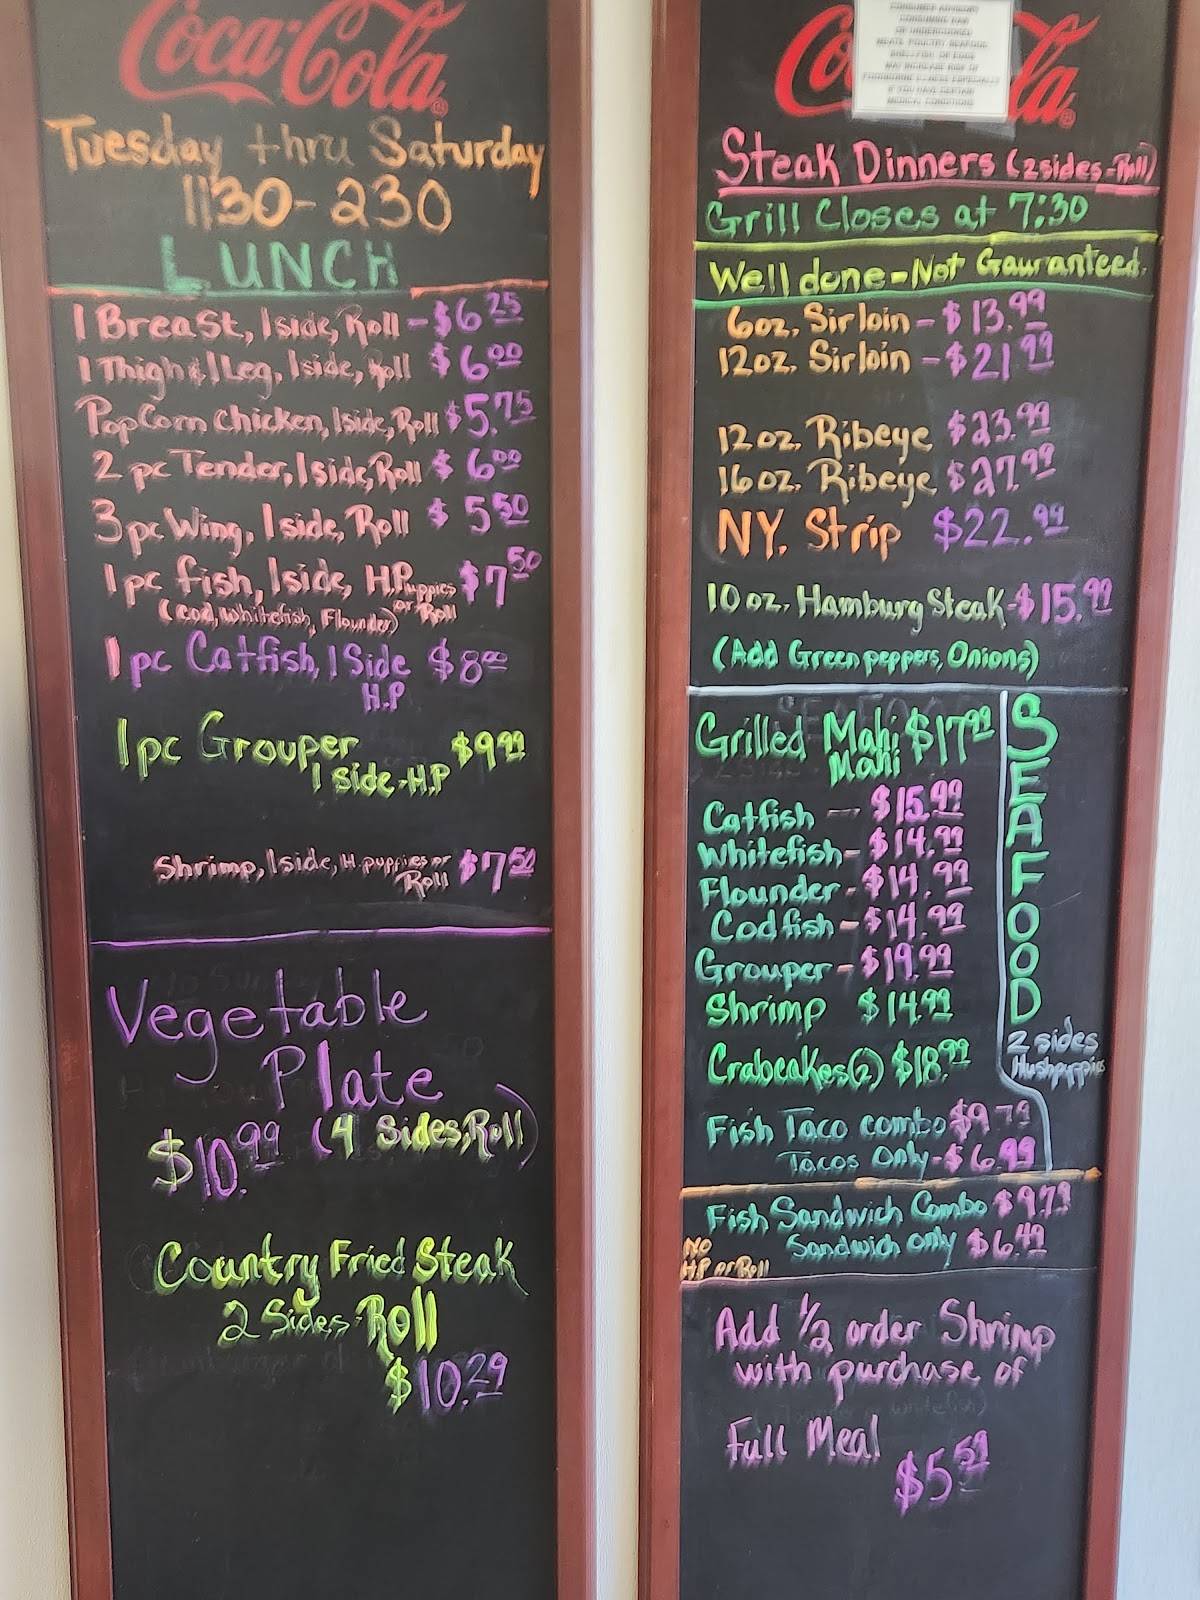 Coca-Cola
Tuesday thru Saturday
1130-230
LUNCH
1 Breast, 1 side, Roll - $6.25
1 Thigh & 1 Leg, 1 side, Roll $6.00
PopCorn Chicken, 1 side, Roll $5.75
2 pc Tender, 1 side, Roll $6.00
3 pc Wing, 1 side, Roll $5.50
1 pc fish, 1 side, H.Puppies or Roll $7.50
(Cod, Whitefish, Flounder)
1 pc Catfish, 1 Side $8.00
H.P
1 pc Grouper $9.99
1 side-H.P
Shrimp, 1 side, H. puppies or $7.50
Roll
Vegetable
Plate
$10.99 (4 Sides, Roll)
Country Fried Steak
2 Sides-Roll
$10.29
Coca-Cola
CONSUMER ADVISORY
CONSUMING RAW
OR UNDERCOOKED
MEATS, POULTRY, SEAFOOD,
SHELLFISH, OR EGGS
MAY INCREASE RISK OF
FOODBORNE ILLNESS ESPECIALLY
IF YOU HAVE CERTAIN
MEDICAL CONDITIONS
Steak Dinners (2 sides-Roll)
Grill Closes at 7:30
Well done-Not Gauranteed.
6oz. Sirloin - $13.99
12oz. Sirloin - $21.99
12 oz. Ribeye $23.99
16 oz. Ribeye $27.99
NY. Strip $22.99
10 oz. Hamburg Steak-$15.99
(Add Green peppers, Onions)
SEAFOOD
2 sides
Hushpuppies
Grilled Mahi $17.99
Mahi
Catfish -- $15.99
Whitefish- $14.99
Flounder - $14.99
Codfish - $14.99
Grouper - $19.99
Shrimp $14.99
Crabcakes(2) $18.99
Fish Taco combo $9.79
Tacos Only - $6.99
Fish Sandwich Combo $9.79
Sandwich only $6.49
No
H.P or Roll
Add 1/2 order Shrimp
with purchase of
Full Meal
$5.59